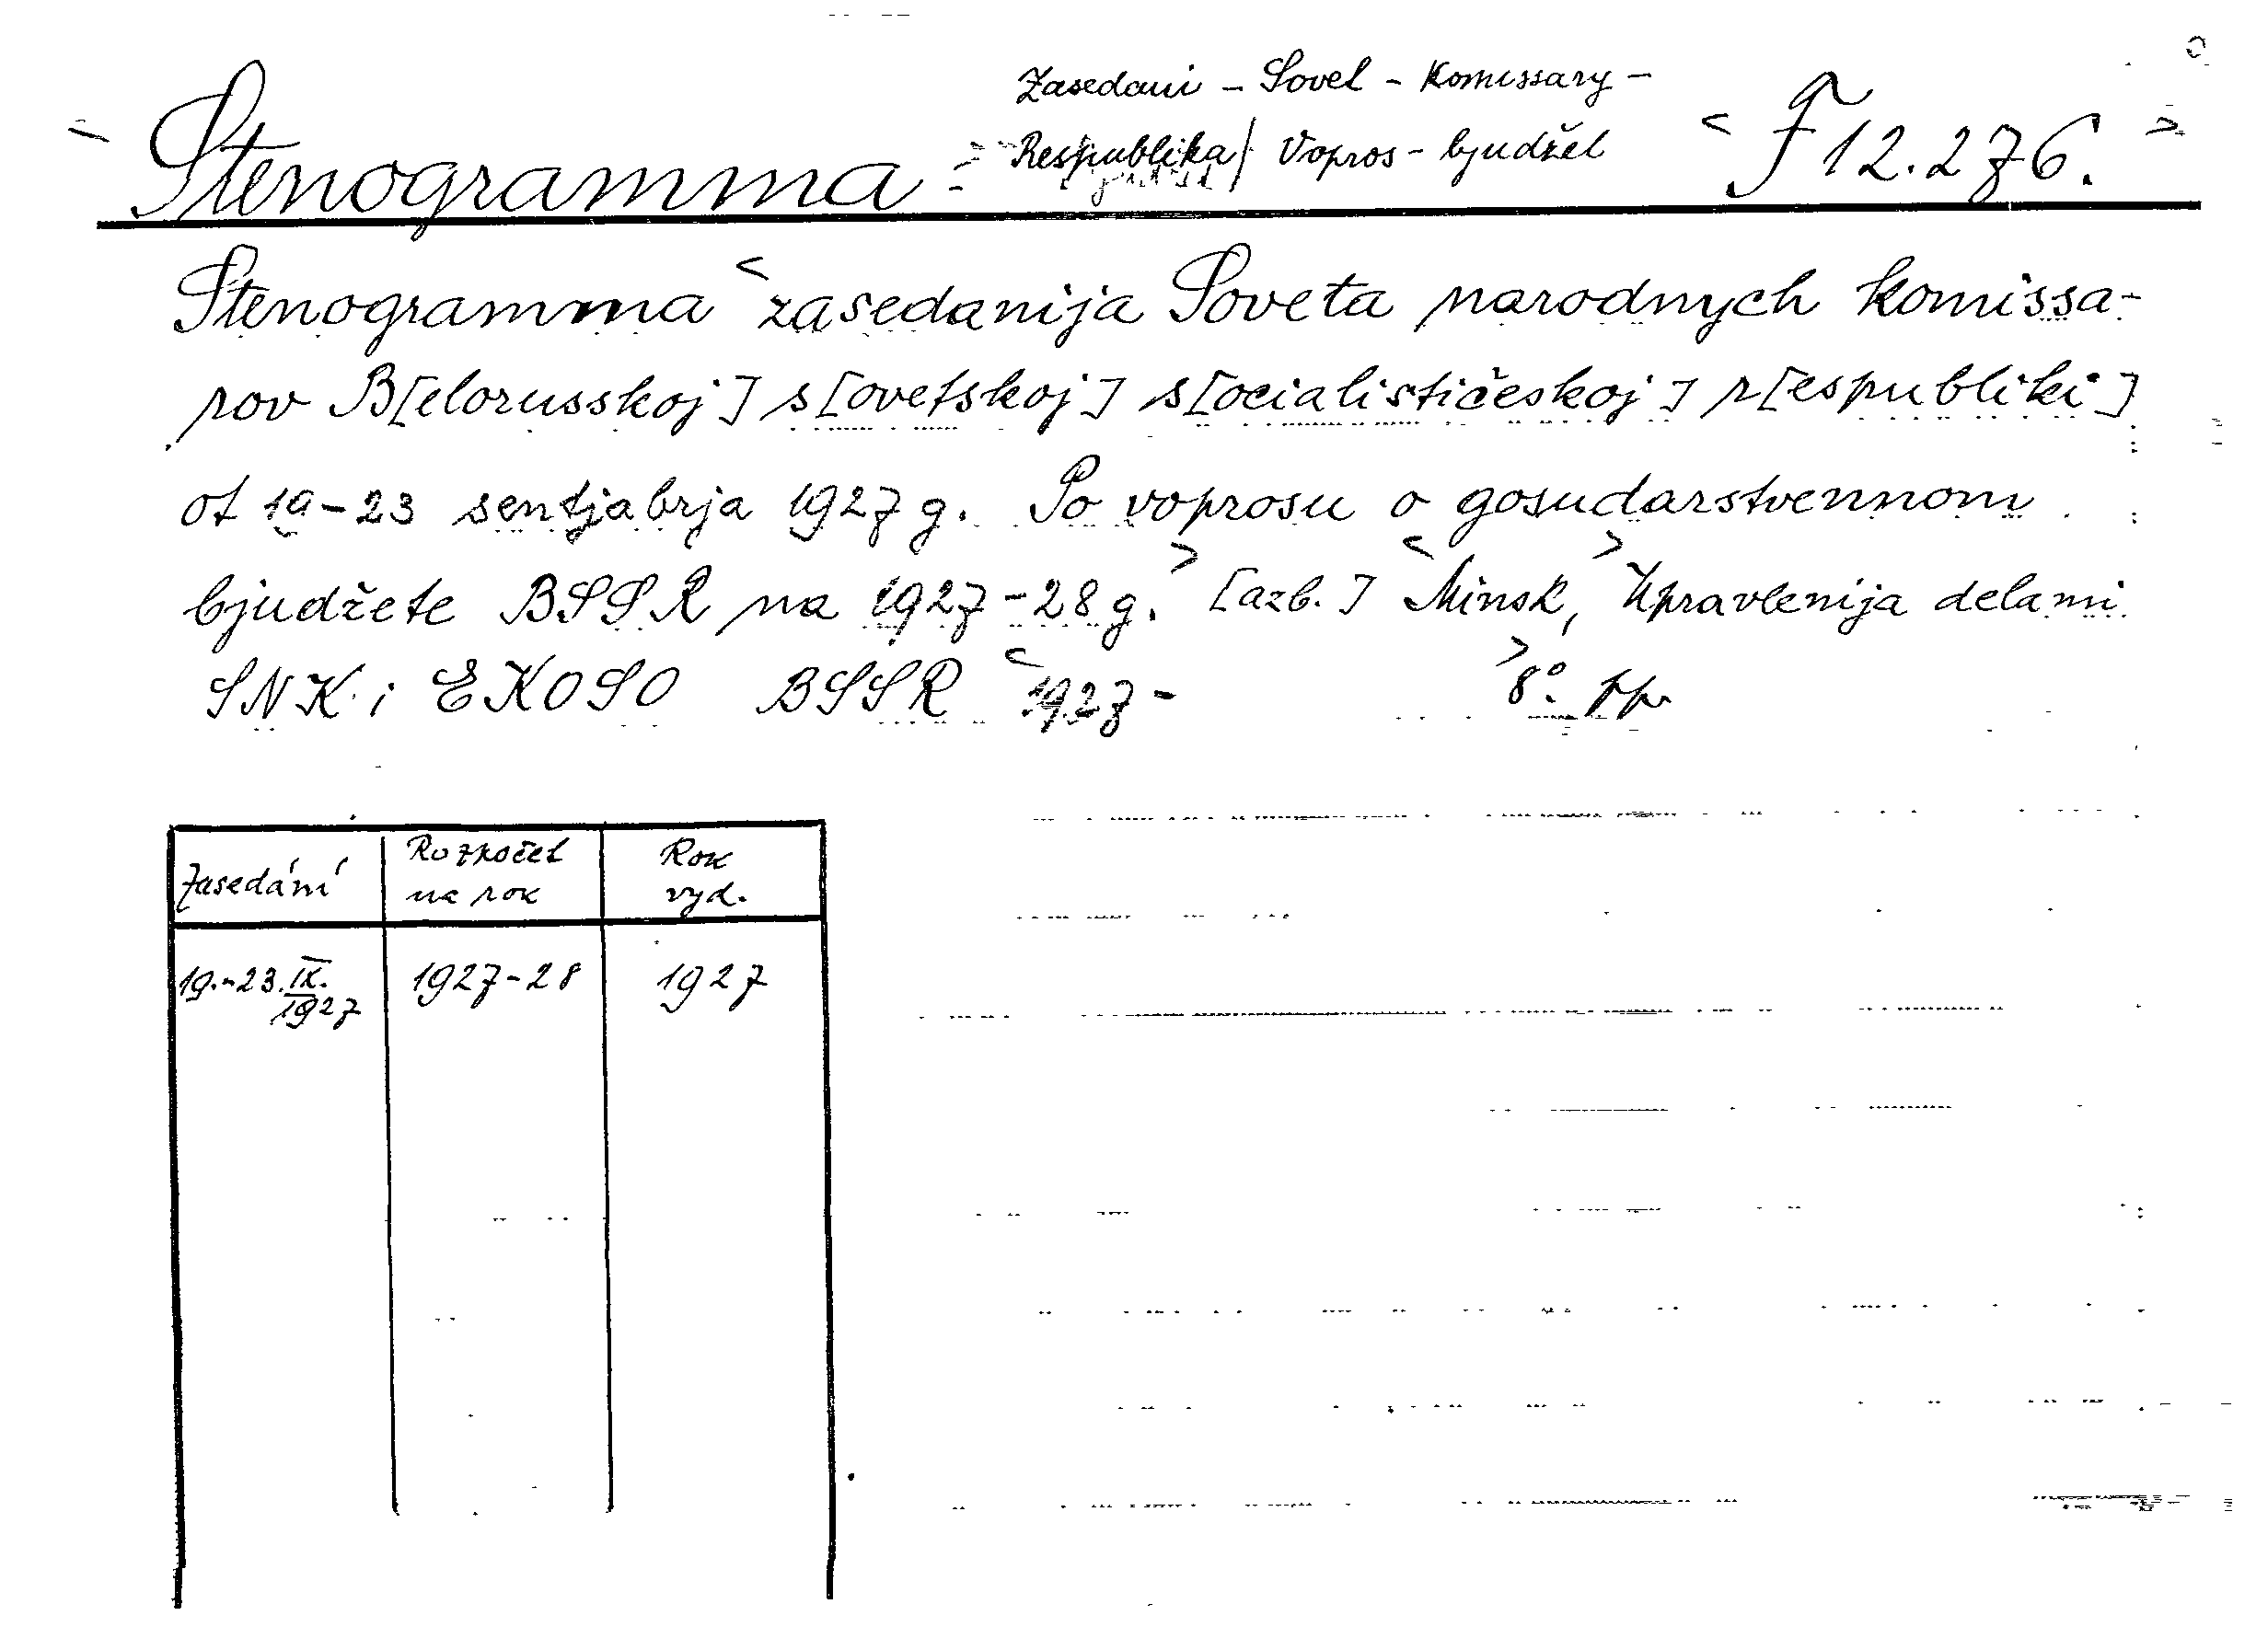 Zasedani - Sovet - Komissary -
Stenogramma - Respublika / Vopros - bjudžet < F 12.276. >
Stenogramma < zasedanija Soveta narodnych komissa-
rov B[elorusskoj] s[ovetskoj] s[ocialističeskoj] r[espubliki]
ot 19-23 sentjabrja 1927 g. Po voprosu o gosudarstvennom
bjudžete BSSR na 1927-28 g. > [azb.] < Minsk, > Upravlenija delami
SNK i EKOSO BSSR < 1927 - > 8°.
Zasedání Rozpočet na rok Rok vyd.
19.-23. IX. 1927 1927-28 1927